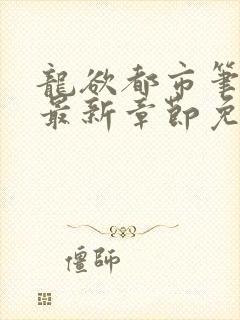 龍欲都市筆
最新章節免
僵師